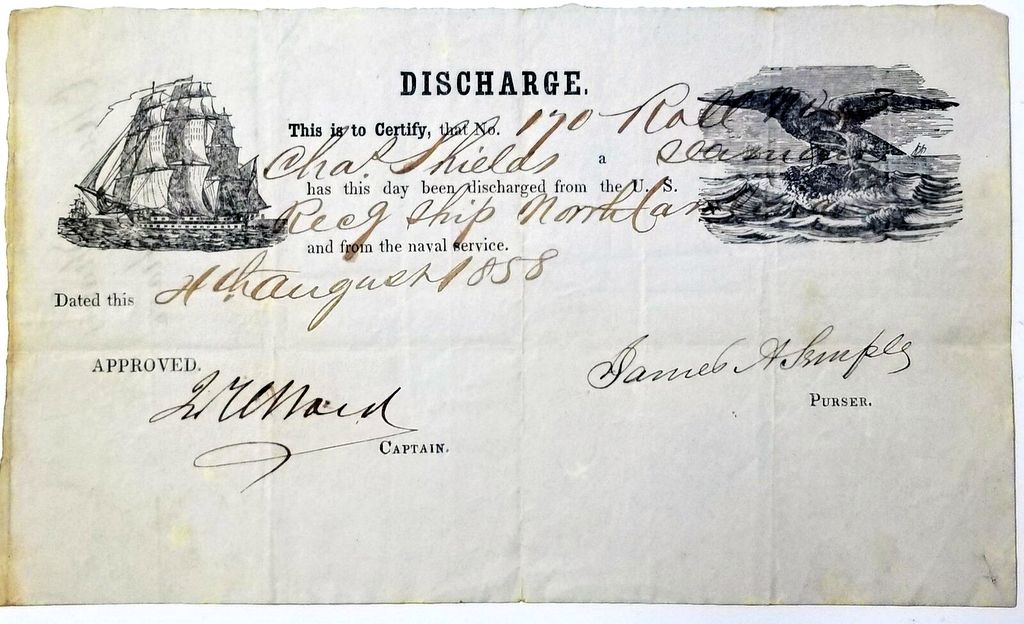 DISCHARGE.
This is to Certify, that No. 170 Roll
Chas. Shields a seaman
has this day been discharged from the U. S.
Recg Ship North Car
and from the naval service.
Dated this 4th august 1858
APPROVED.
James A Semple
PURSER.
Ward
CAPTAIN.